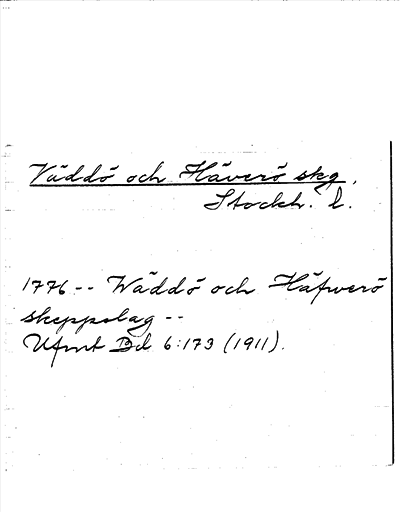 Väddö och Häverö skg.
Stockh. l.
1776 -- Wäddö och Häfwerö
skeppslag --
Ufmt Bd 6:173 (1911).